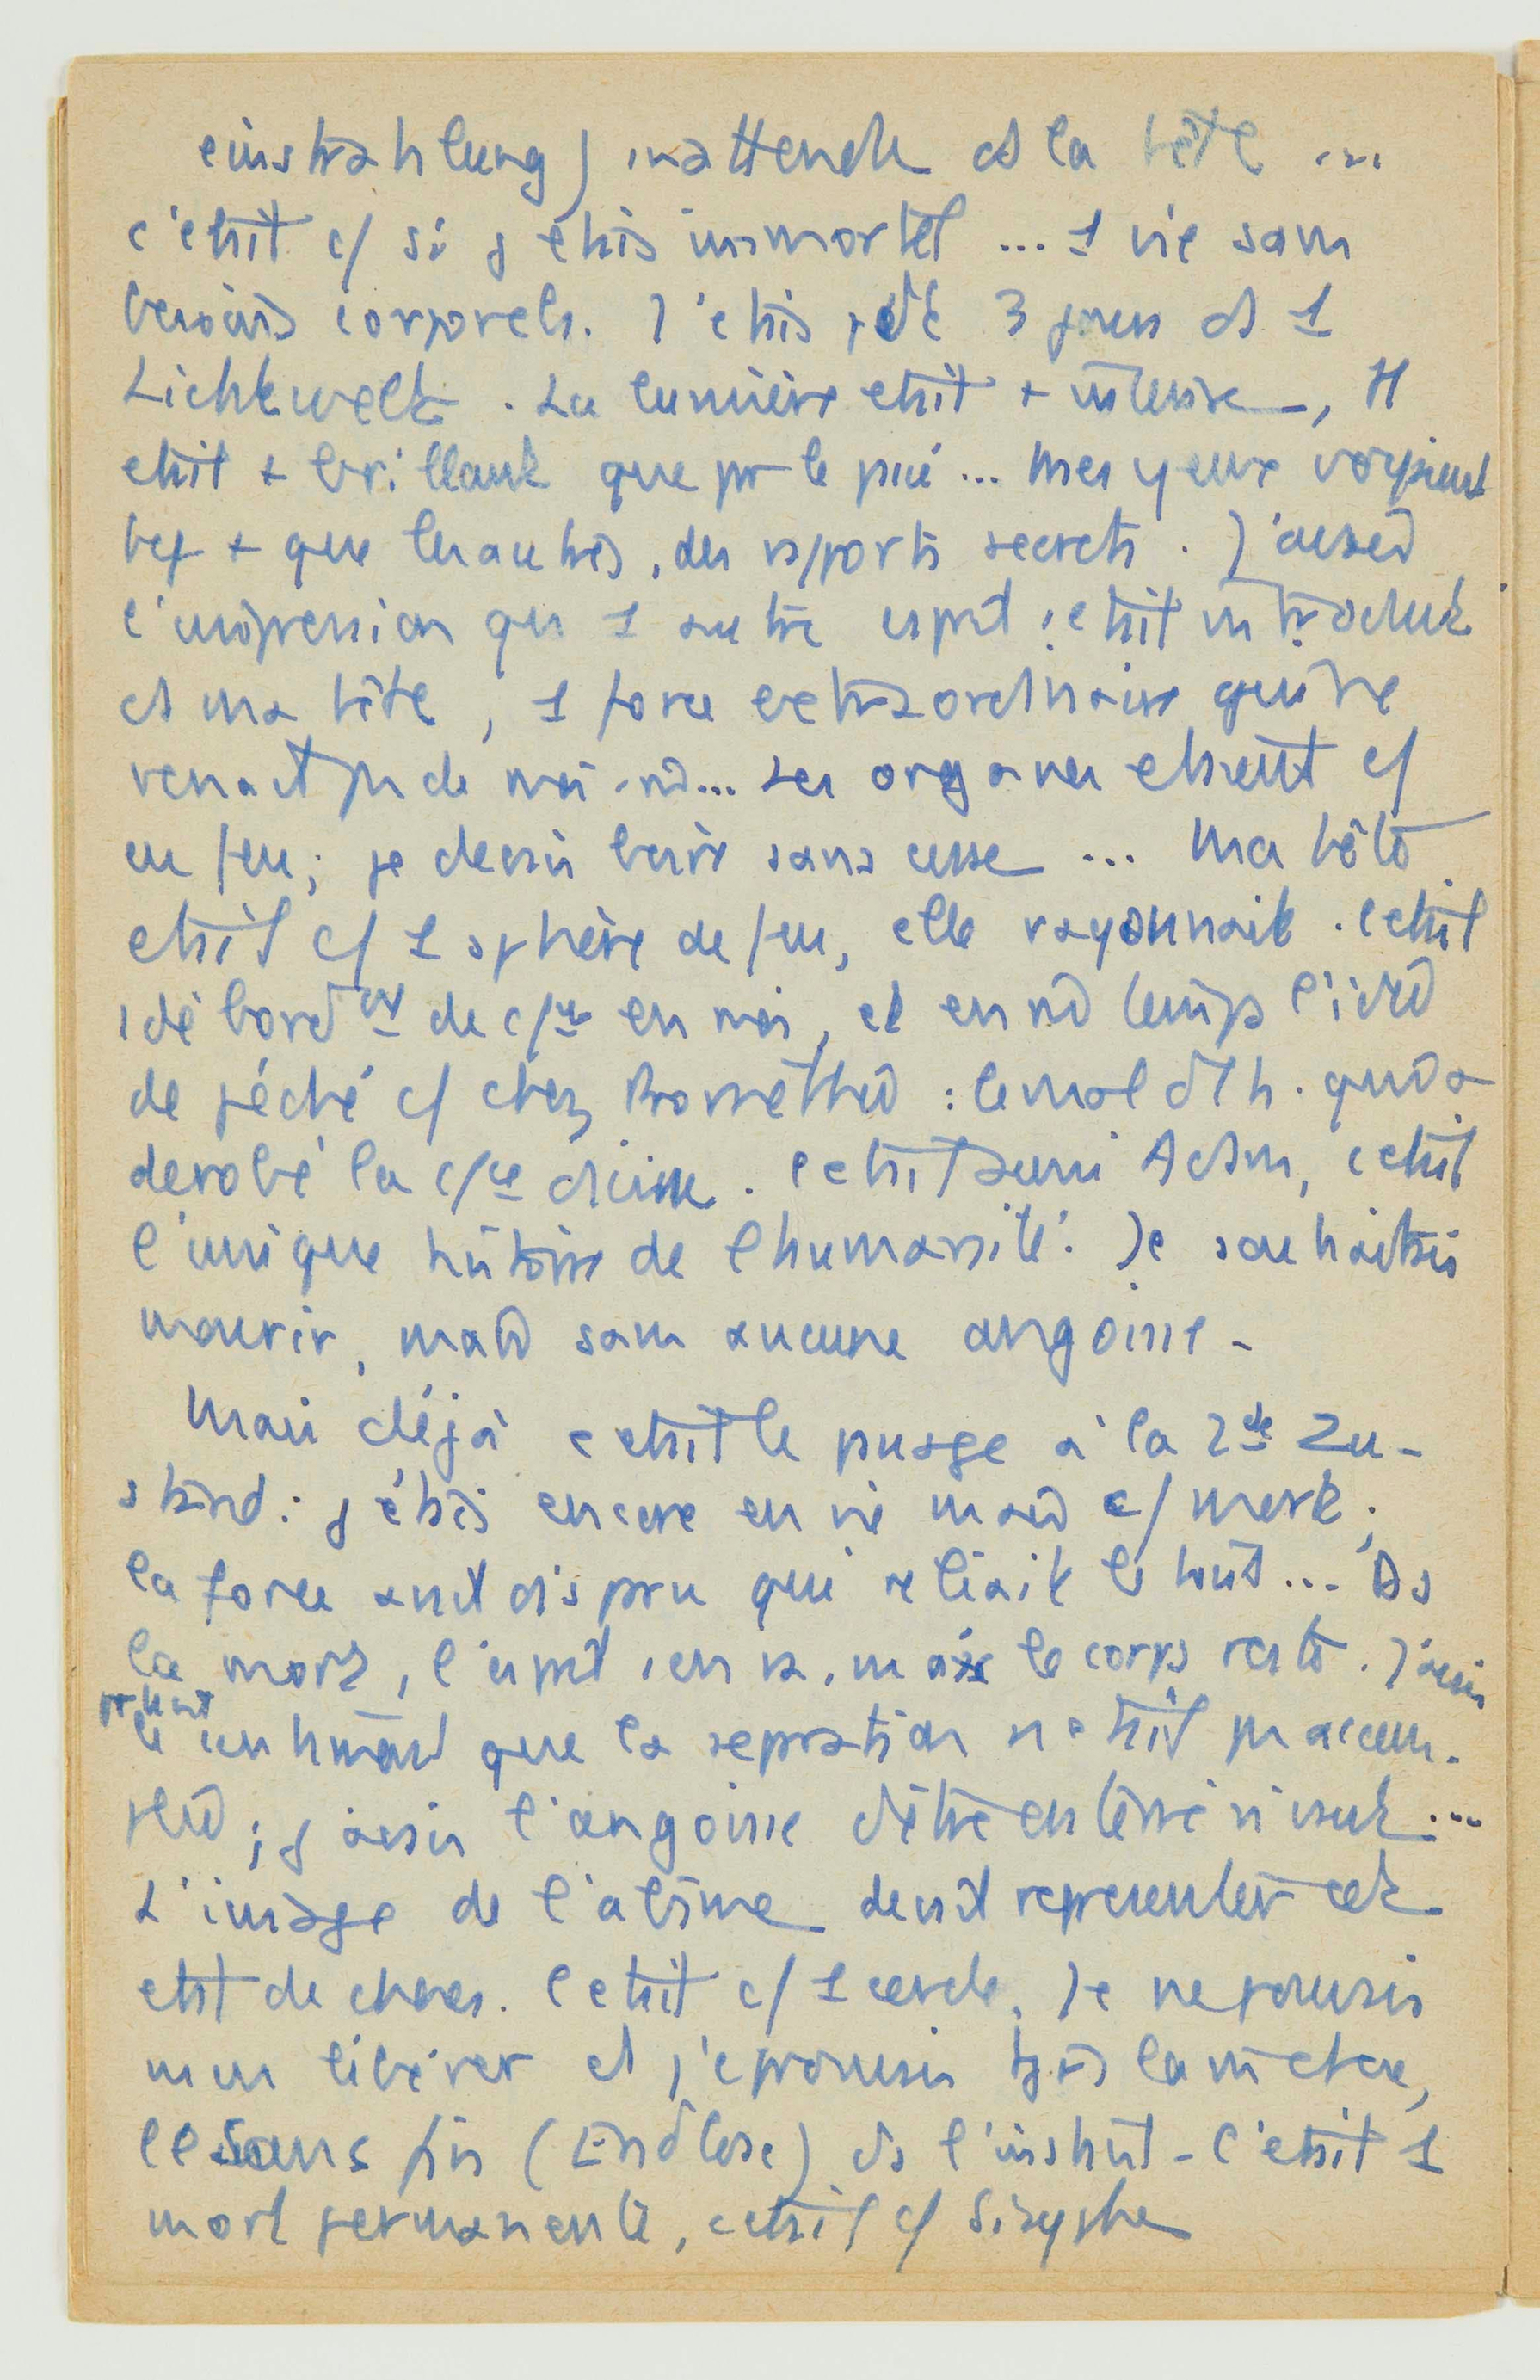 einstrahlung) inattendue ds la tête ...
c'était c/ si j'étais immortel ... 1 vie sans
besoins corporels. J'étais 3 jours ds 1
Lichtwelt. La lumière était + intense, tt
était + brillant que pr le passé ... Mes yeux voyaient
bcp + que les autres, des rapports secrets. J'avais
l'impression qu' 1 autre esprit s'était introduit
ds ma tête, 1 force extraordinaire qui ne
venait pas de moi-m̂ ... Les organes étaient c/
en feu; je devais boire sans cesse ... Ma tête
était c/ 1 sphère de feu, elle rayonnait. C'était
1 débordt de en moi, et en m̂ temps l'idée
de péché c/ chez Prométhée : le mal d l'h. qui a
dérobé la divine. C'était aussi Adam, c'était
l'unique histoire de l'humanité. Je souhaitais
mourir, mais sans aucune angoisse -
Mais déjà c'était le passage à la 2de Zu-
stand : j'étais encore en vie mais c/ mort;
la force avait disparu qui reliait le tout ... Ds
la mort, l'esprit s'en va, mais le corps reste. J'avais
prtant
le sentiment que la séparation n'était pas accom-
plie; j'avais l'angoisse d'être enterré vivant ...
L'image de l'abîme devait représenter cet
état de chaos. C'était c/ 1 cercle. Je ne pouvais
m'en libérer et j'éprouvais tjrs
le sans fin (Endlose) ds l'instant - c'était 1
mort permanente, c'était c/ Sisyphe